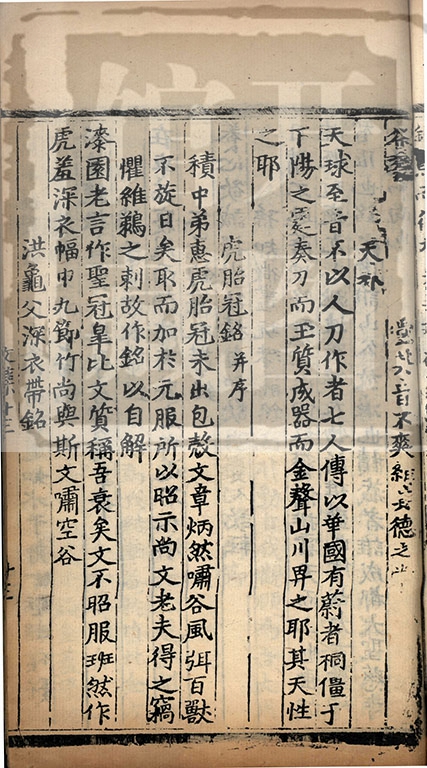 音不爽維德之
天
天球至音不以人刀作者七人傳以華國有蔚者桐僵于
下陽之處奏刀而玉質成器而金聲山川畀之耶其天性
之耶
虎胎冠銘并序
積中弟惠虎胎冠未出包殼文章炳然嘯谷風弭百獸
不旋日矣取而加於元服所以昭示尚文老夫得之竊
懼維鵜之刺故作銘以自解
漆園老言作聖冠皐比文質稱吾衰矣文不昭服班然作
虎羞深衣幅巾九節竹尚與斯文嘯空谷
洪龜父深衣帶銘